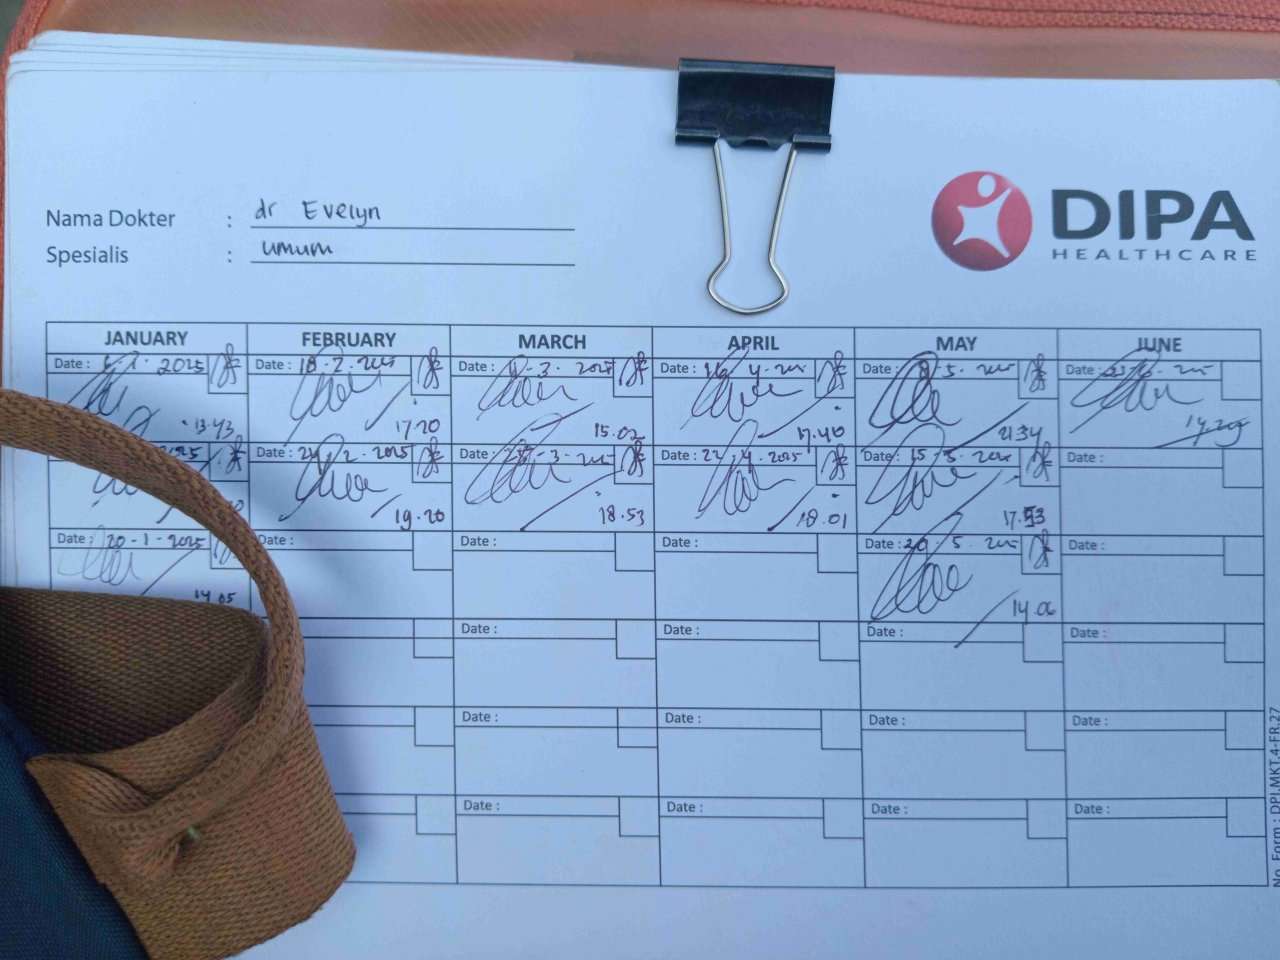 Nama Dokter : dr Evelyn
Spesialis : umum
DIPA
HEALTHCARE
JANUARY FEBRUARY MARCH APRIL MAY JUNE
Date : 2025 Date : 18-2- Date : -3-2025 Date : 16-4- Date : -5- Date :
13.43 17.20 15.02 17.40 21.34 14.29
2025 Date : 2-2025 Date : -3- Date : 22-4-2025 Date : 15-5- Date :
19.20 18.53 18.01 17.53
Date : 20-1-2025 Date : Date : Date : Date : 20.5. Date :
14.05 14.06
Date : Date : Date : Date :
Date : Date : Date : Date :
Date : Date : Date : Date :
No. Form : DPI.MKT.4-FR.27